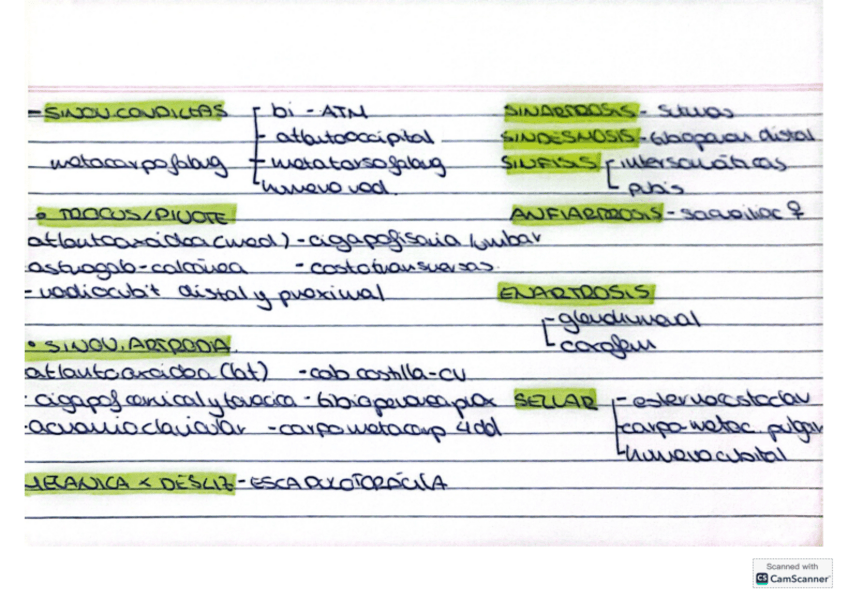 - SINOV. CONDILEAS
bi - ATM
- atlantooccipital
metacarpofalang
- metatarsofalang
humerorad.
• TROCUS/PIVOTE
atlantoaxoidea (med) - cigapofisaria lumbar
astragalo-calcánea - costotransversas.
- radiocubit distal y proximal
• SINOV. ARTRODIA.
atlantoaxoidea (lat) - cab costilla-CV
- cigapof cervical y torácica - tibioperonea prox
- acromioclavicular - carpometacarp 4dd
MECANICA < DESLIZ - ESCAPULOTORÁCICA
SINARTROSIS - suturas
SINDESMOSIS - tibioperon distal
SINFISIS
- intersomáticas
pubis
ANFIARTROSIS - sacroiliac ♀
ENARTROSIS
- glenohumeral
- coxofem
SELLAR
- esternocostoclav
carpo-metac. pulgar
humerocubital
Scanned with
CS CamScanner